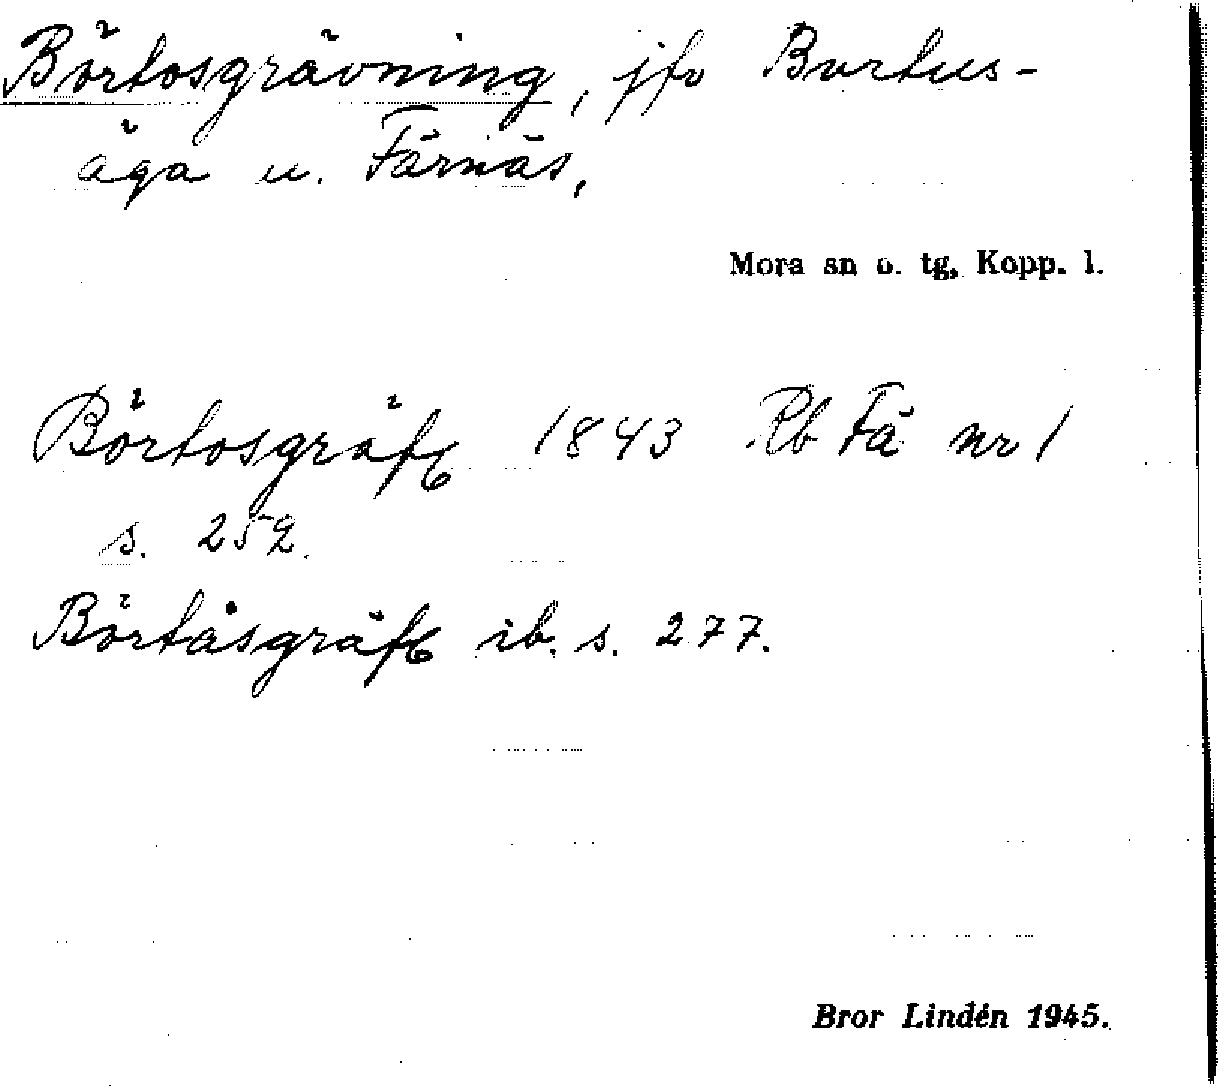 Börtosgrävning, jfr Burtus-
äga u. Färnäs,
Mora sn o. tg, Kopp. l.
Börtosgräfv 1843 Rb Fä nr 1
s. 252.
Börtåsgräfv ib. s. 277.
Bror Lindén 1945.